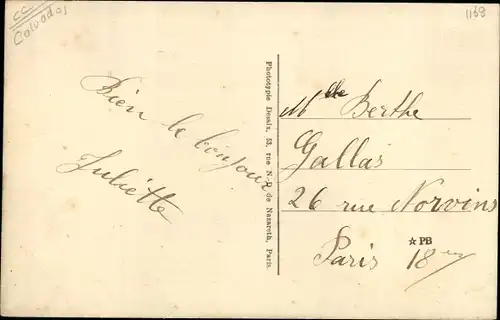 CC
Calvados
1159
Bien le bonjour
Juliette
Phototypie Desaix, 53, rue N.-D. de Nazareth, Paris.
Mlle Berthe
Gallas
26 rue Norvins
☆ PB
Paris 18em